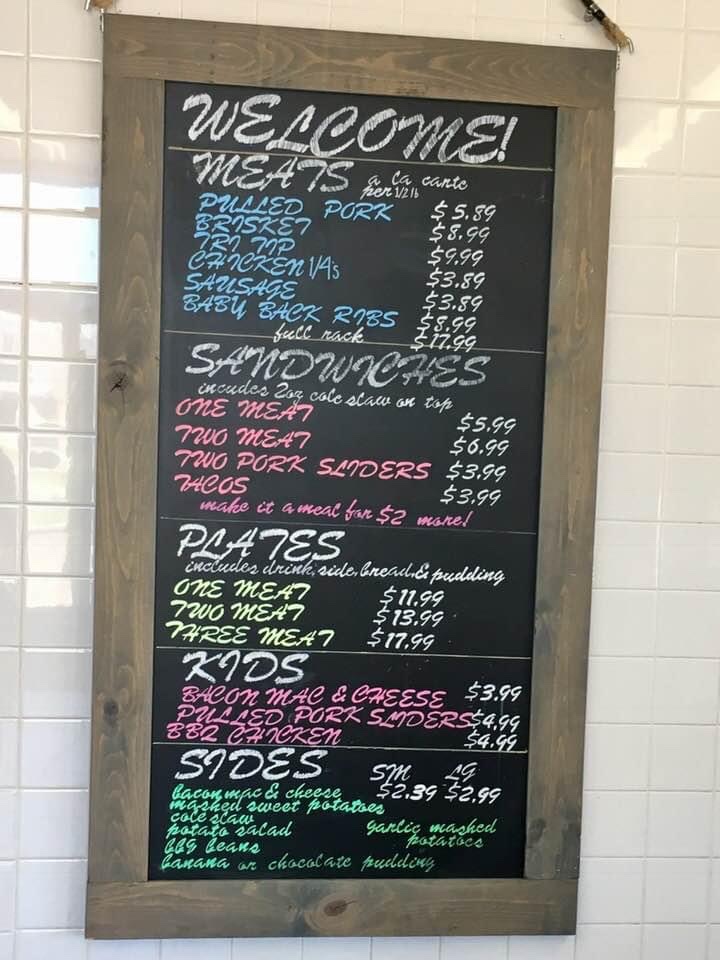 WELCOME!
MEATS a la carte per 1/2 lb
PULLED PORK $5.89
BRISKET $8.99
TRI TIP $9.99
CHICKEN 1/4's $3.89
SAUSAGE $3.89
BABY BACK RIBS $8.99
full rack $17.99
SANDWICHES
incudes 2oz cole slaw on top
ONE MEAT $5.99
TWO MEAT $6.99
TWO PORK SLIDERS $3.99
TACOS $3.99
make it a meal for $2 more!
PLATES
includes drink, side, bread, & pudding
ONE MEAT $11.99
TWO MEAT $13.99
THREE MEAT $17.99
KIDS
BACON MAC & CHEESE $3.99
PULLED PORK SLIDERS $4.99
BBQ CHICKEN $4.99
SIDES SM LG
bacon mac & cheese $2.39 $2.99
mashed sweet potatoes
cole slaw
potato salad garlic mashed
bbq beans potatoes
banana or chocolate pudding